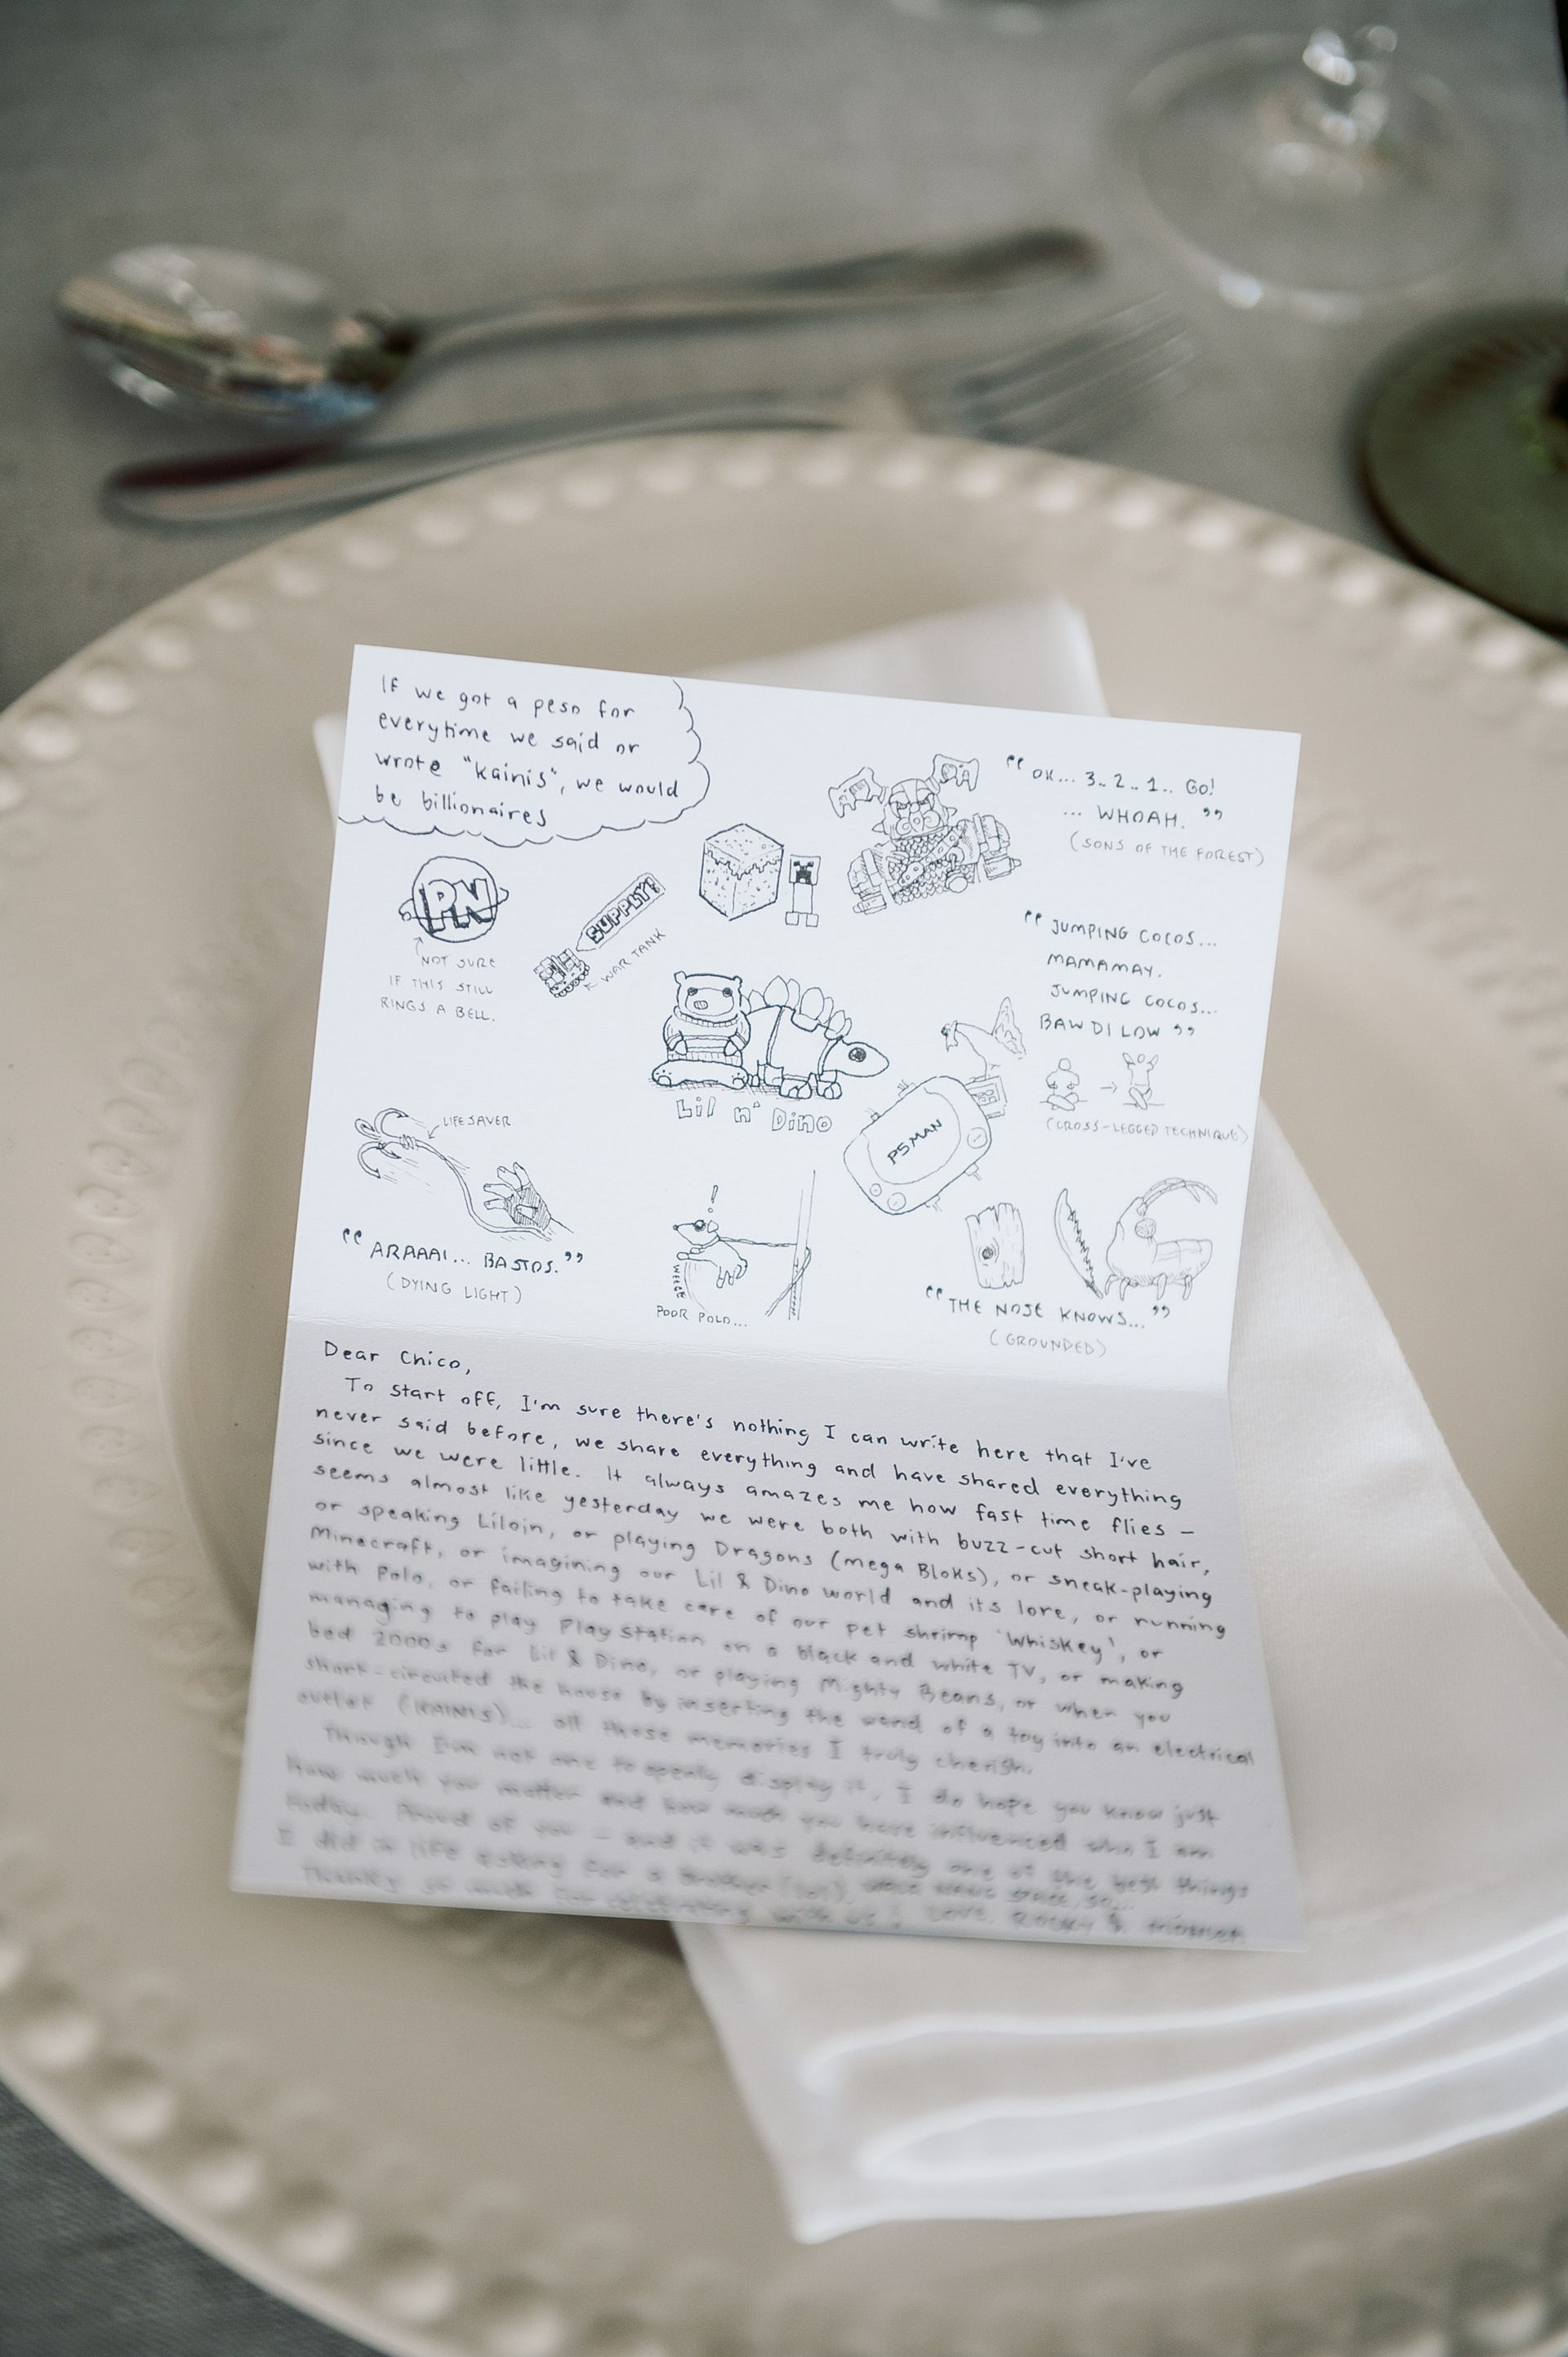 If we got a peso for
everytime we said or
wrote "kainis", we would
be billionaires
"OK... 3.. 2.. 1.. Go!
... WHOAH."
(SONS OF THE FOREST)
IPN
NOT SURE
IF THIS STILL
RINGS A BELL.
SUPPLY!
WAR TANK
"JUMPING COCOS...
MAMAMAY.
JUMPING COCOS...
BAWDILOW"
(CROSS-LEGGED TECHNIQUE)
Lil n' Dino
PSMAN
LIFESAVER
"ARAAAI... BASTOS."
(DYING LIGHT)
!
WEEE
POOR POLO...
"THE NOSE KNOWS..."
(GROUNDED)
Dear Chico,
To start off, I'm sure there's nothing I can write here that I've
never said before, we share everything and have shared everything
since we were little. It always amazes me how fast time flies –
seems almost like yesterday we were both with buzz-cut short hair,
or speaking Liloin, or playing Dragons (Mega Bloks), or sneak-playing
Minecraft, or imagining our Lil & Dino world and its lore, or running
with Polo, or failing to take care of our pet shrimp 'Whiskey', or
managing to play PlayStation on a black and white TV, or making
bed 2000s for Lil & Dino, or playing Mighty Beans, or when you
short-circuited the house by inserting the wand of a toy into an electrical
outlet (KAINIS)... all these memories I truly cherish.
Though I'm not one to openly display it, I do hope you know just
how much you matter and how much you have influenced who I am
today. Proud of you – and it was definitely one of the best things
I did in life asking for a brother (lol),
Thanks so much for celebrating with us! Love, Rocky &